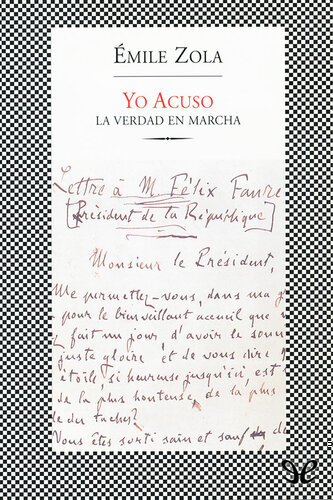 ÉMILE ZOLA
YO ACUSO
LA VERDAD EN MARCHA
Lettre à M. Félix Faure
[Président de la République]
Monsieur le Président,
Me permettez-vous, dans ma g
pour le bienveillant accueil que
fait un jour, d'avoir le souci
juste gloire, et de vous dire
étoile, si heureuse jusqu'ici, est
de la plus honteuse, de la plus
de des taches?
Vous êtes sorti sain et sauf de